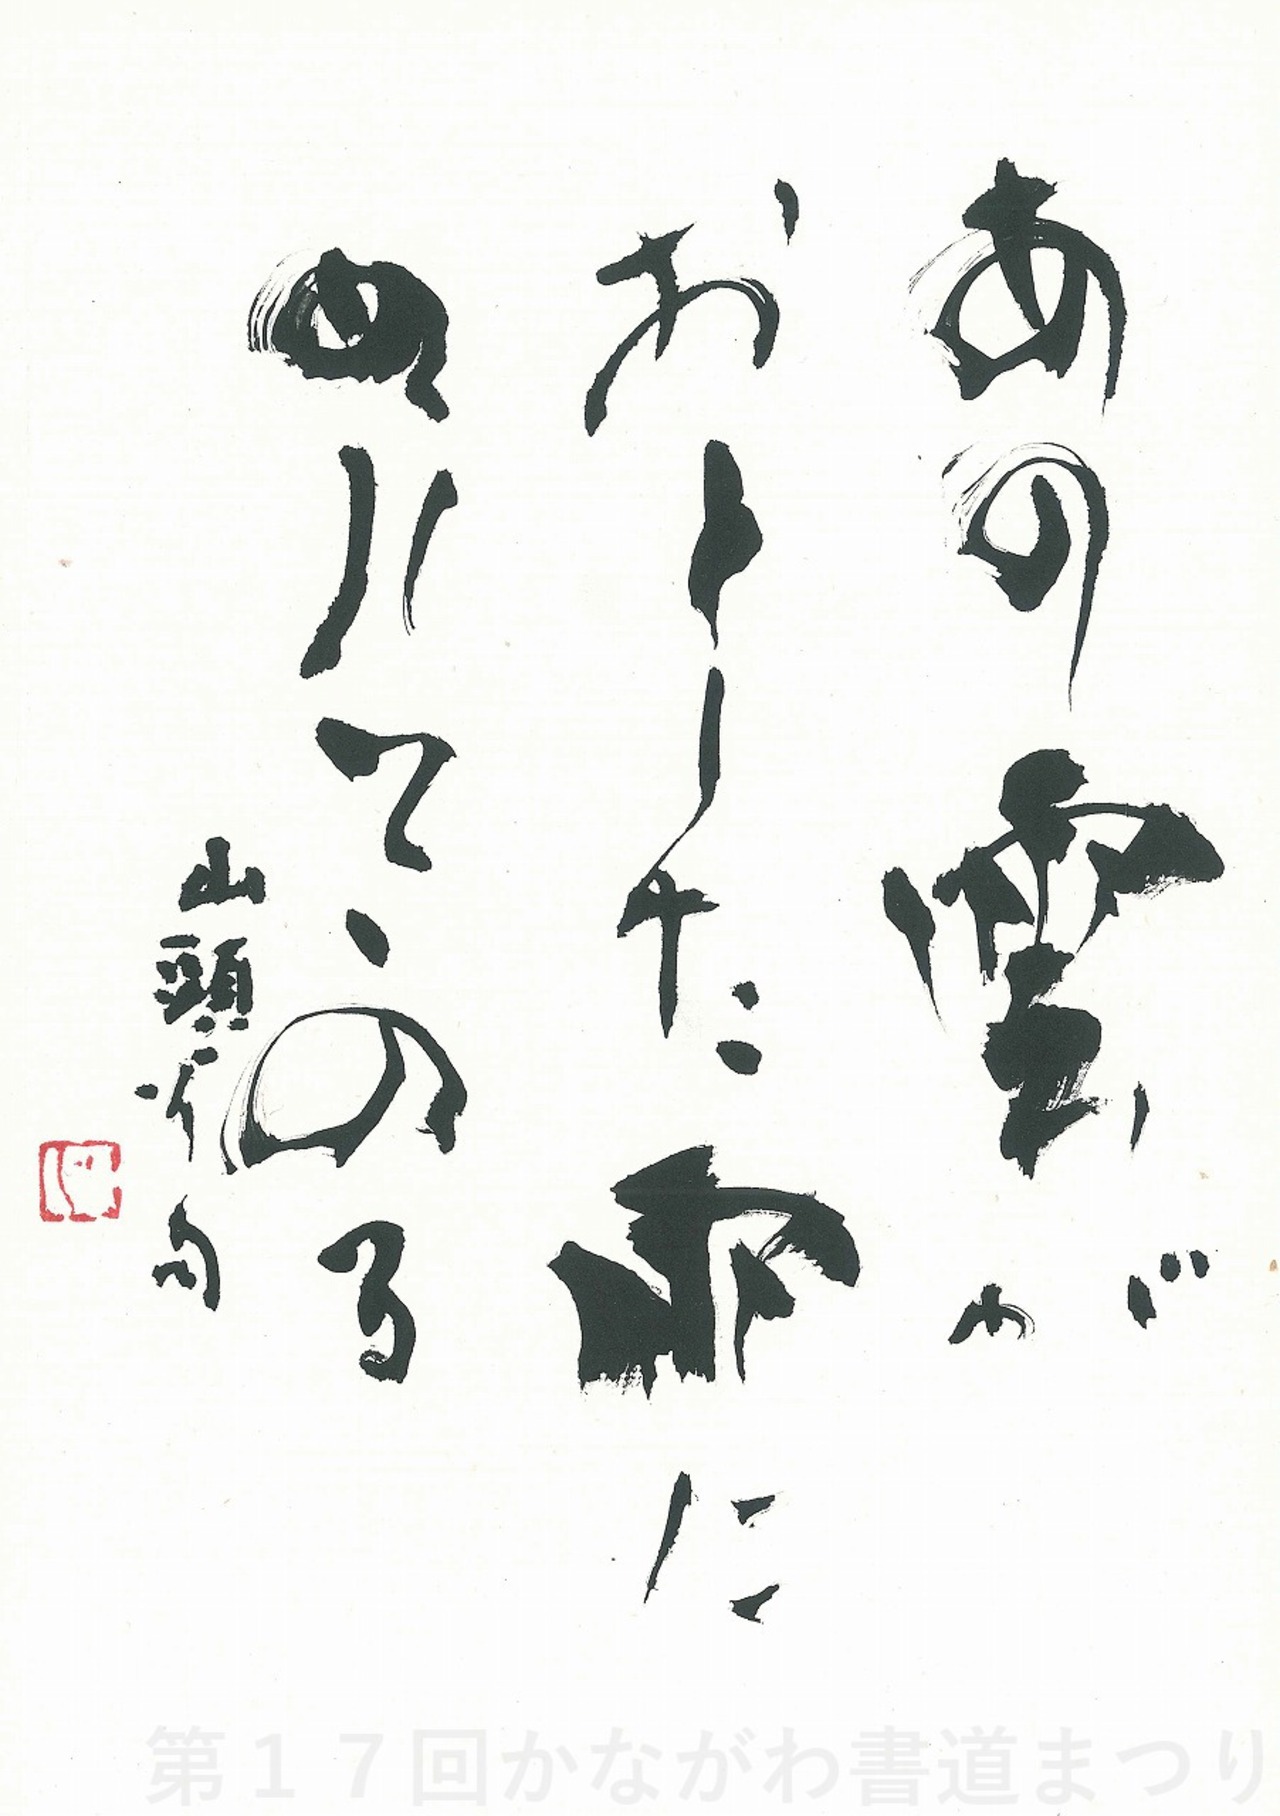 あの雲が
おとした雨に
ぬれてゐる
山頭火句
第１７回かながわ書道まつり